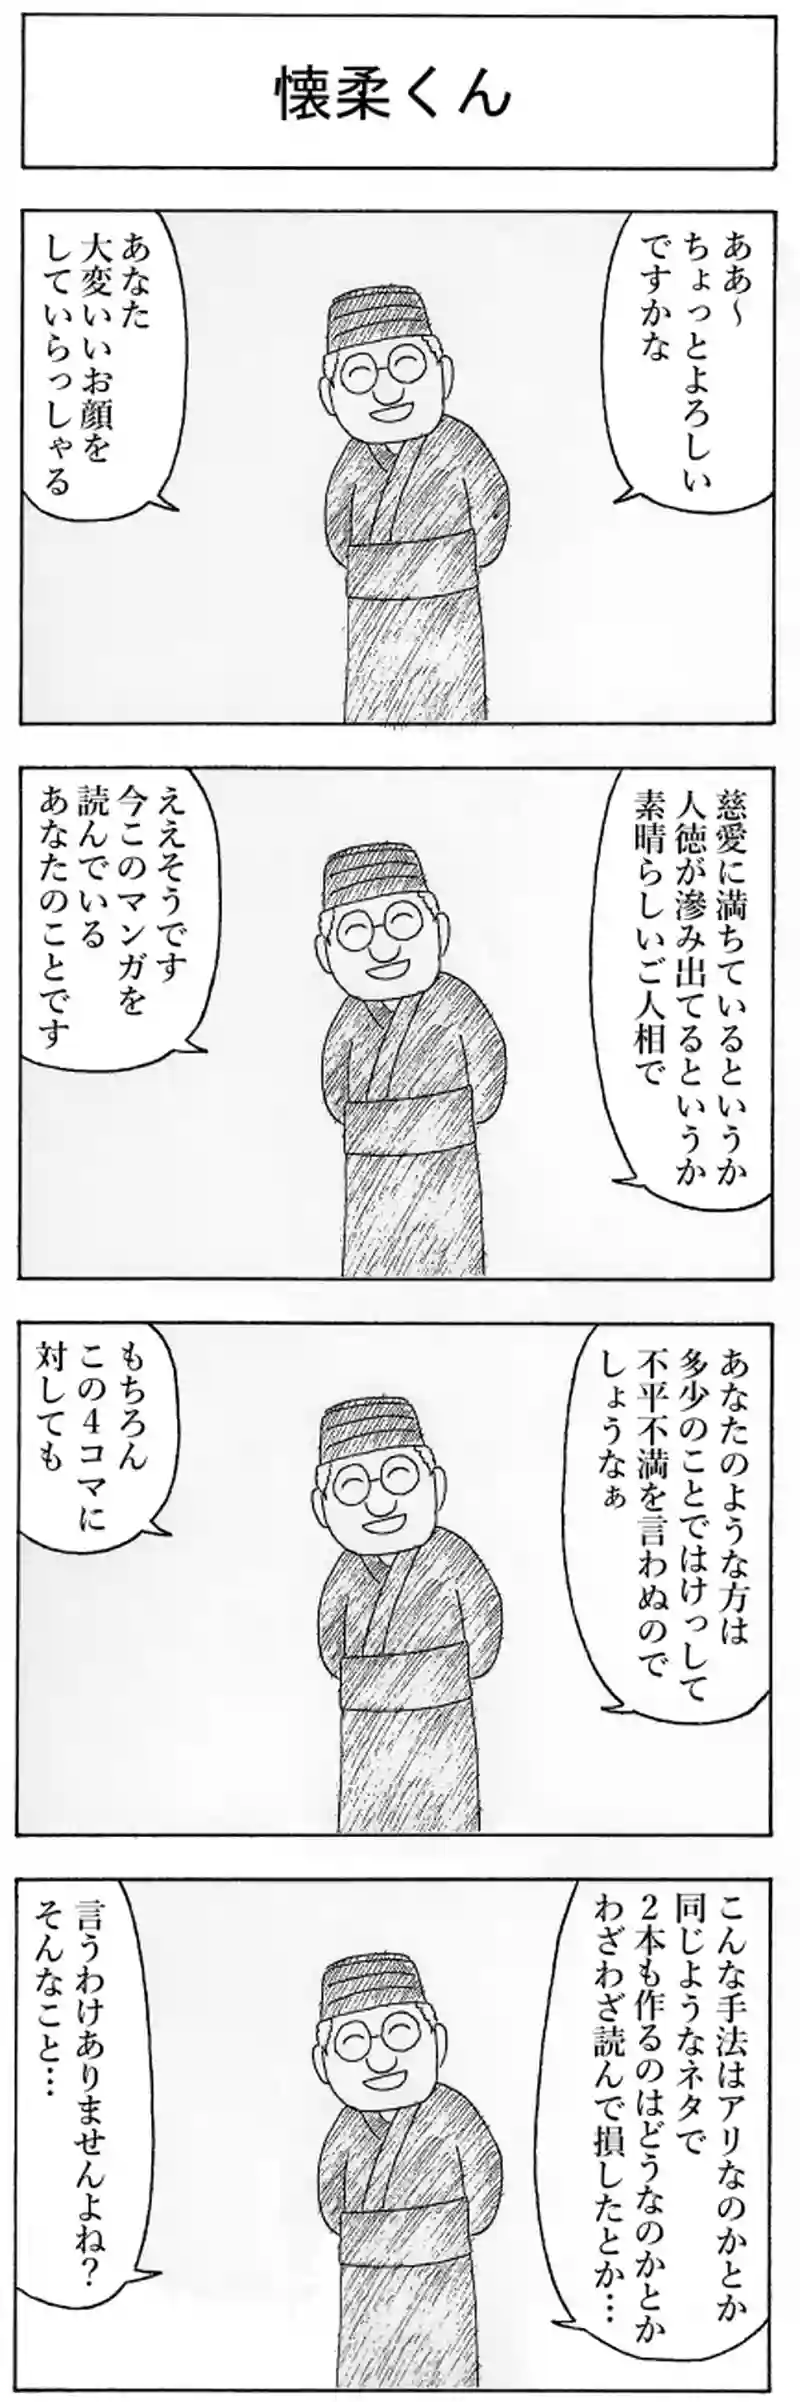 懐柔くん
ああ～
ちょっとよろしい
ですかな
あなた
大変いいお顔を
していらっしゃる
慈愛に満ちているというか
人徳が滲み出てるというか
素晴らしいご人相で
ええそうです
今このマンガを
読んでいる
あなたのことです
あなたのような方は
多少のことではけっして
不平不満を言わぬので
しょうなぁ
もちろん
この4コマに
対しても
こんな手法はアリなのかとか
同じようなネタで
2本も作るのはどうなのかとか
わざわざ読んで損したとか…
言うわけありませんよね？
そんなこと…